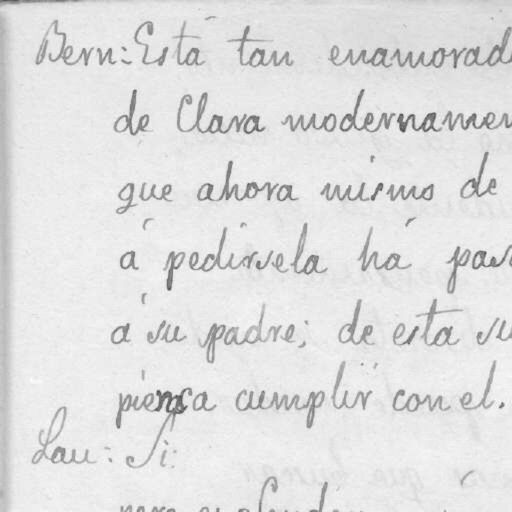 Bern: Está tan enamorad
de Clara modernamen
que ahora mismo de
á pedirsela há pas
á su padre; de esta su
piensa cumplir con el.
Lau: Si: